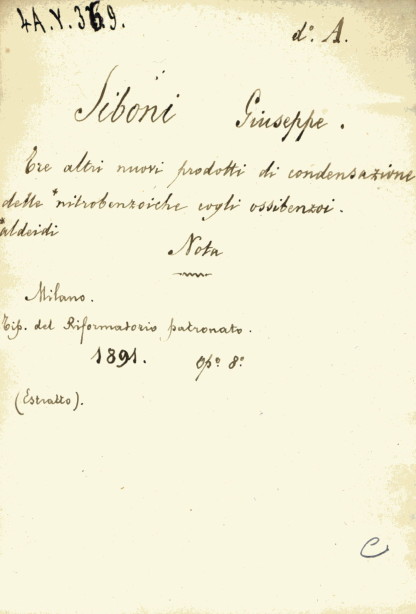 4A.Y.369.
d.º A.
Siboni Giuseppe.
Tre altri nuovi prodotti di condensazione
delle *nitrobenzoiche cogli ossibenzoi.
*aldeidi
Nota
Milano.
Tip. del Riformatorio patronato.
1891. Op.º 8.º
(Estratto).
C